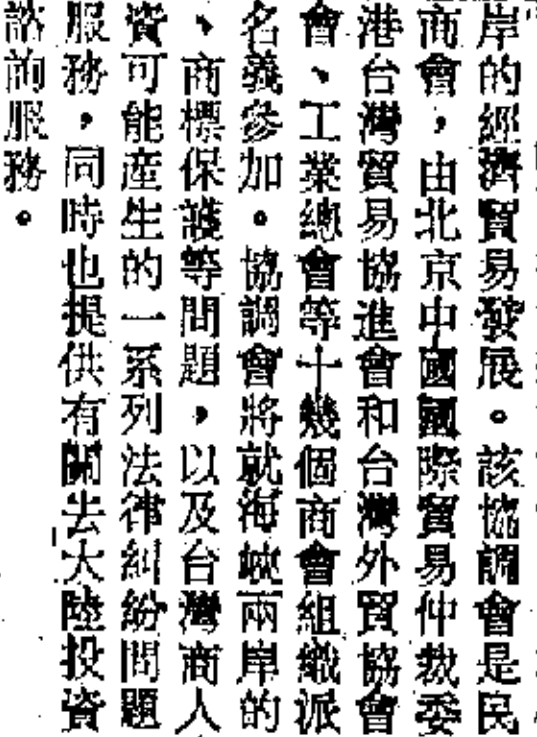 岸的經濟貿易發展。該協調會是民
商會，由北京中國國際貿易仲裁委
港台灣貿易協進會和台灣外貿協會
會、工業總會等十幾個商會組織派
名義參加。協調會將就海峽兩岸的
、商標保護等問題，以及台灣商人
資可能產生的一系列法律糾紛問題
服務，同時也提供有關去大陸投資
諮詢服務。